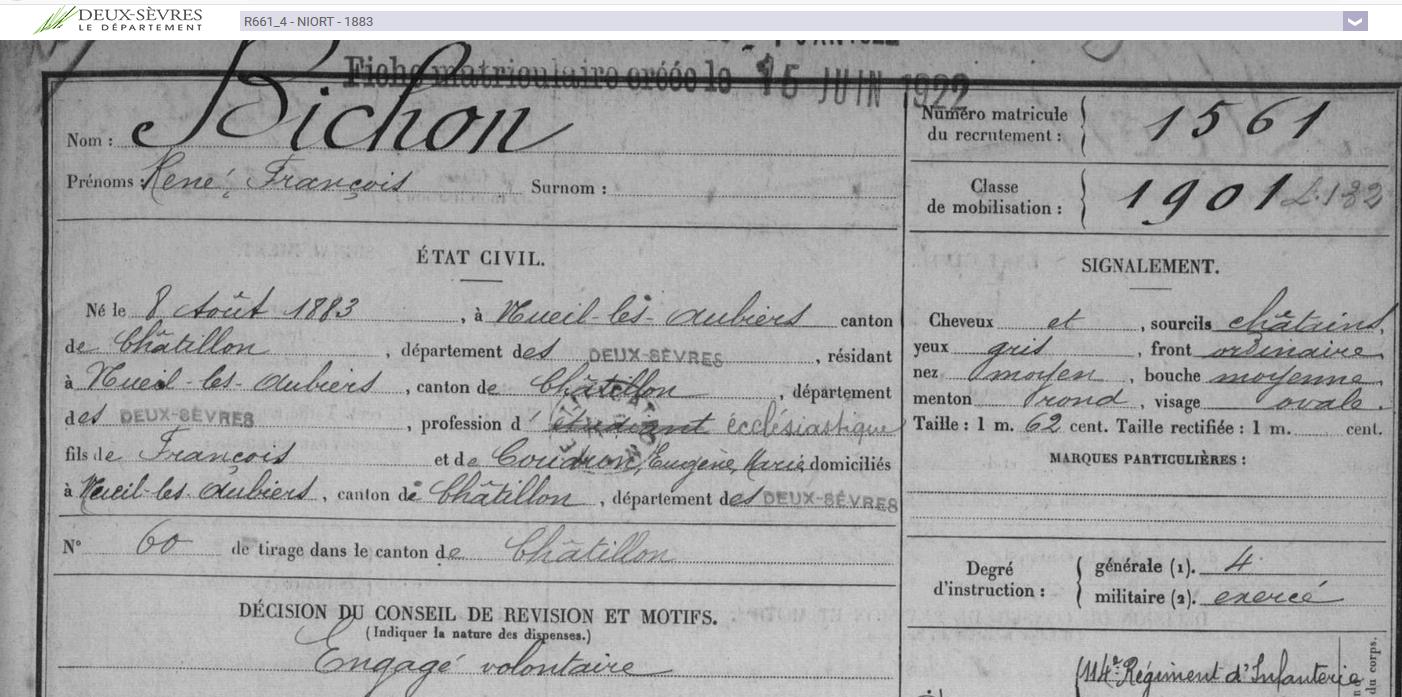 DEUX-SÈVRES
LE DÉPARTEMENT
R661_4 - NIORT - 1883
Fiche matriculaire créée le 15 JUIN 1922
Nom : Bichon
Prénoms : René, François Surnom :
Numéro matricule
du recrutement : 1561
Classe
de mobilisation : 1901
ÉTAT CIVIL.
Né le 8 Août 1883, à Nueil-les-Aubiers canton
de Châtillon, département des DEUX-SÈVRES, résidant
à Nueil-les-Aubiers, canton de Châtillon, département
des DEUX-SÈVRES, profession d'étudiant ecclésiastique
fils de François et de Coudron, Eugénie, Marie, domiciliés
à Nueil-les-Aubiers, canton de Châtillon, département des DEUX-SÈVRES
N° 60 de tirage dans le canton de Châtillon
DÉCISION DU CONSEIL DE REVISION ET MOTIFS.
(Indiquer la nature des dispenses.)
Engagé volontaire
SIGNALEMENT.
Cheveux et, sourcils châtains,
yeux gris, front ordinaire,
nez moyen, bouche moyenne,
menton rond, visage ovale.
Taille : 1 m. 62 cent. Taille rectifiée : 1 m. cent.
MARQUES PARTICULIÈRES :
Degré
d'instruction :
générale (1). 4
militaire (2). exercé
114e Régiment d'Infanterie
du corps.